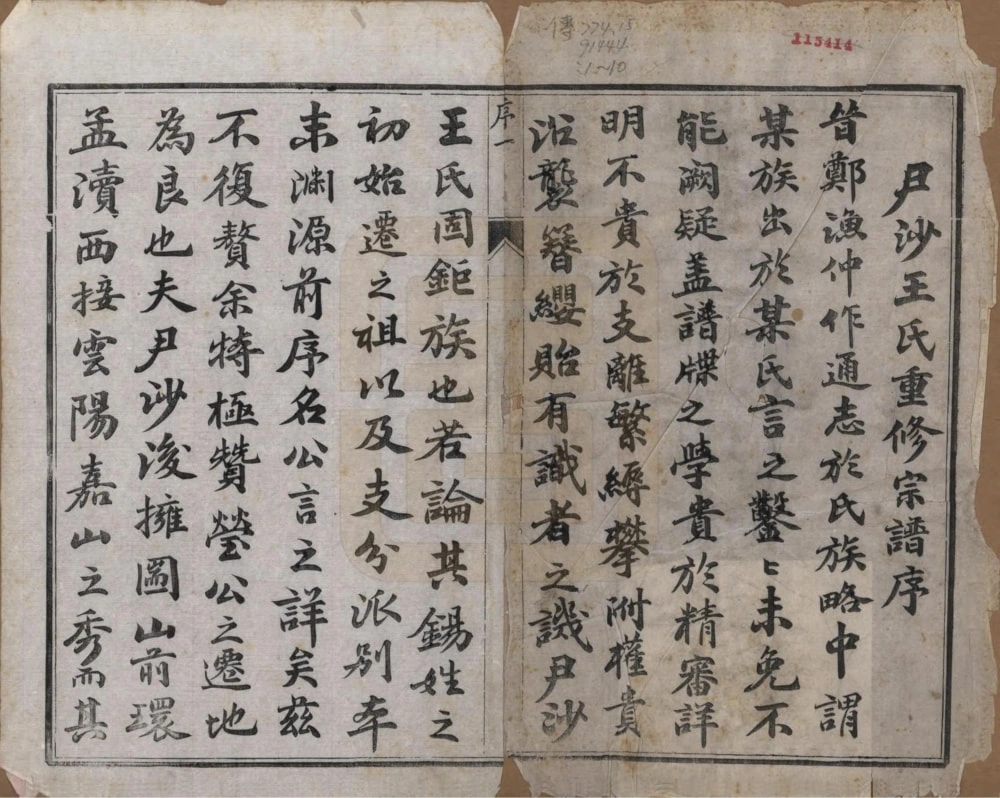 尹沙王氏重修宗譜序
昔鄭漁仲作通志於氏族略中謂
某族出於某氏言之鑿〻未免不
能闕疑盖譜牒之學貴於精審詳
明不貴於支離繁縟攀附權貴
沿襲簪纓貽有識者之譏尹沙
序一
王氏固鉅族也若論其錫姓之
初始遷之祖以及支分派别本
末淵源前序名公言之詳矣茲
不復贅余特極贊瑩公之遷地
為良也夫尹沙後擁圌山前環
孟瀆西接雲陽嘉山之秀而其
傳 774.15
91444
1~10
115414